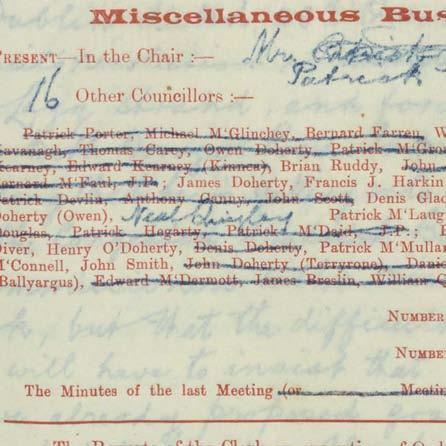 Miscellaneous Bus
PRESENT—In the Chair :—
Patrick
16 Other Councillors :—
Patrick Porter, Michael M‘Glinchey, Bernard Farren, W
Kavanagh, Thomas Carey, Owen Doherty, Patrick M‘Gro
Kearney, Edward Kearney (Kinnea), Brian Ruddy, John
Bernard M‘Faul, J.P.; James Doherty, Francis J. Harkin
Patrick Devlin, Anthony Canny, John Scott, Denis Glac
Doherty (Owen), Neal Patrick M‘Laug
Douglas, Patrick Hegarty, Patrick M‘Daid, J.P.;
Diver, Henry O’Doherty, Denis Doherty, Patrick M‘Mullan
M‘Connell, John Smith, John Doherty (Terryrone), Danie
Ballyargus), Edward M‘Dermott, James Breslin, William
NUMBER
NUMBE
The Minutes of the last Meeting (or Meetin